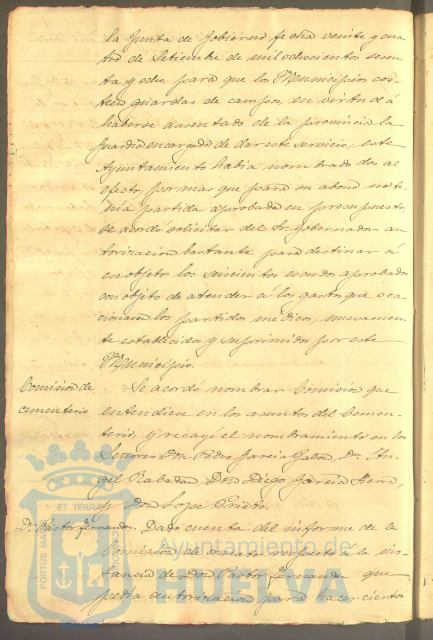 la Junta de Gobierno fecha veinte y cua
tro de Setiembre de mil ochocientos sesen
ta y ocho para que los Municipios cos
teen guardas de campo, en virtud á
haberse ausentado de la provincia la
guardia encargada de dar este servicio, este
Ayuntamiento habia nombrado dos al
efecto por mas que para su abono no te
nia partida aprobada en presupuesto,
Se acordó solicitar del Sr. Gobernador au
torizacion bastante para destinar á
ese objeto los seiscientos escudos aprobados
con objeto de atender á los gastos que oca
cionasen los partidos medicos, nuevamen
te establecidos y suprimidos por este
Municipio.
Comision de
cementerio
Se acordó nombrar Comision que
entendiere en los asuntos del Cemen-
terio, y recayó el nombramiento en los
Señores Don Pedro Garcia Dn. An
gel Rabadan Don Diego Garcia
y Don Lope Prieto.
D. Pastor Fernandez. Dada cuenta del informe de la
Comision de respecto á la ins
tancia de Don Pastor Fernandez que
pedia autorizacion para hacer ciertos
PORTUS MARIS
ET TERRAE
CUSTODIA
Ayuntamiento de
HUELVA